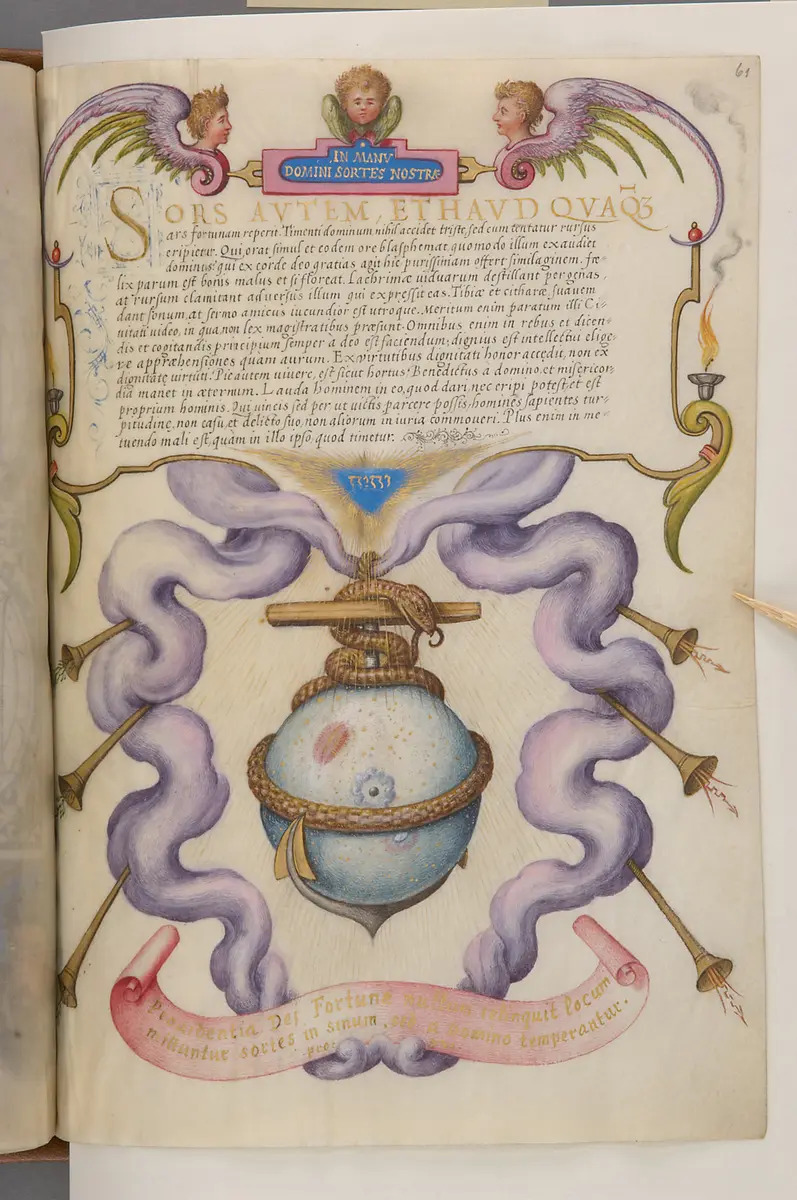 61
IN MANV
DOMINI SORTES NOSTRÆ
SORS AVTEM, ET HAVD QVAQ3
ars fortunam reperit. Timenti dominum nihil accidet triste, sed cum tentatur rursus
eripietur. Qui orat simul et eodem ore blasphemat, quomodo illum exaudiet
dominus? qui ex corde deo gratias agit hic purissimam offert similaginem. fœ-
lix parum est bonis malus et si floreat. Lachrimæ viduarum destillant per genas,
at rursum clamitant adversus illum qui expressit eas. Tibiæ et citharæ suavem
dant sonum, at sermo amicus iucundior est utroque. Meritum enim paratum illi Ci-
vitati video, in qua non lex magistratibus præsunt. Omnibus enim in rebus et dicen-
dis et cogitandis principium semper a deo est faciendum; dignius est intellectui elige-
re appræhensiones quàm aurum. Ex virtutibus dignitati honor accedit, non ex
dignitate virtuti. Pie autem vivere, est sicut hortus Benedictus a domino, et misericor-
dia manet in æternum. Lauda hominem in eo, quod dari, nec eripi potest, et est
proprium hominis. Qui vincis sed per ut victis parcere possis, homines sapientes tur-
pitudine, non casu, et delicto suo, non aliorum in iuria commoveri. Plus enim in me-
tuendo mali est, quàm in illo ipso, quod timetur.
יהוה
Providentia Dei Fortunæ nullum relinquit locum
mittuntur sortes in sinum, sed a domino temperantur.
pro: